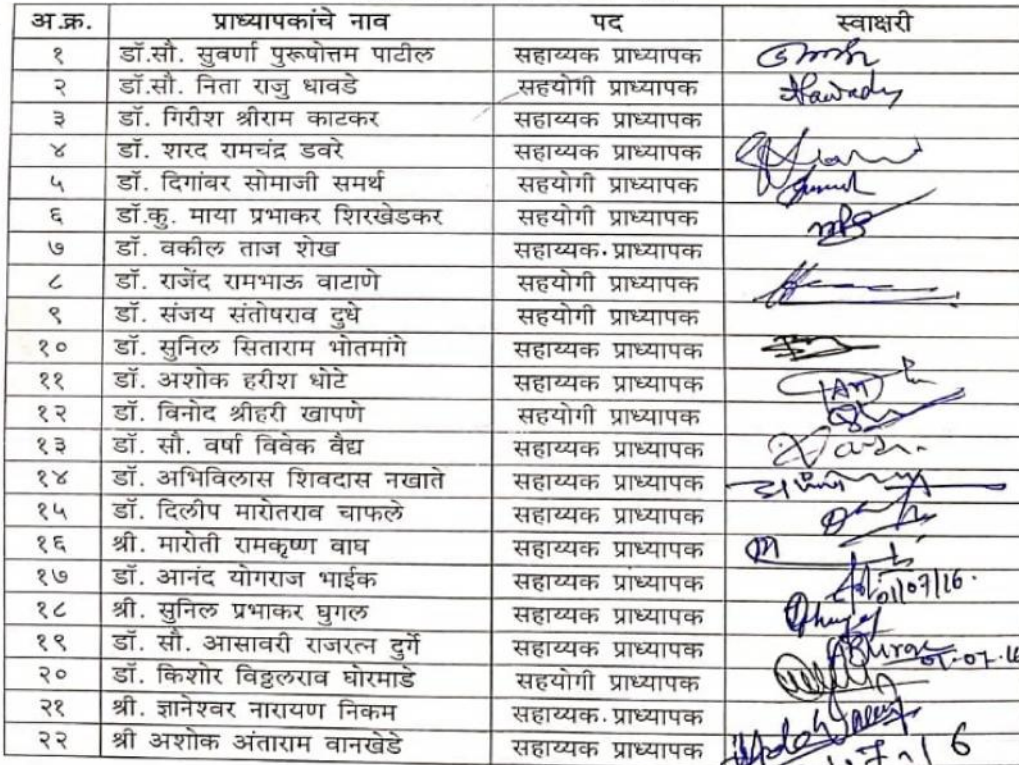 अ.क्र. प्राध्यापकांचे नाव पद स्वाक्षरी
१ डॉ.सौ. सुवर्णा पुरूषोत्तम पाटील सहाय्यक प्राध्यापक
२ डॉ.सौ. निता राजु धावडे सहयोगी प्राध्यापक
३ डॉ. गिरीश श्रीराम काटकर सहाय्यक प्राध्यापक
४ डॉ. शरद रामचंद्र डवरे सहाय्यक प्राध्यापक
५ डॉ. दिगांबर सोमाजी समर्थ सहयोगी प्राध्यापक
६ डॉ.कु. माया प्रभाकर शिरखेडकर सहयोगी प्राध्यापक
७ डॉ. वकील ताज शेख सहाय्यक. प्राध्यापक
८ डॉ. राजेंद रामभाऊ वाटाणे सहयोगी प्राध्यापक
९ डॉ. संजय संतोषराव दुधे सहयोगी प्राध्यापक
१० डॉ. सुनिल सिताराम भोतमांगे सहाय्यक प्राध्यापक
११ डॉ. अशोक हरीश धोटे सहाय्यक प्राध्यापक
१२ डॉ. विनोद श्रीहरी खापणे सहयोगी प्राध्यापक
१३ डॉ. सौ. वर्षा विवेक वैद्य सहाय्यक प्राध्यापक
१४ डॉ. अभिविलास शिवदास नखाते सहाय्यक प्राध्यापक
१५ डॉ. दिलीप मारोतराव चाफले सहाय्यक प्राध्यापक
१६ श्री. मारोती रामकृष्ण वाघ सहाय्यक प्राध्यापक
१७ डॉ. आनंद योगराज भाईक सहाय्यक प्राध्यापक 01/07/16.
१८ श्री. सुनिल प्रभाकर घुगल सहाय्यक प्राध्यापक
१९ डॉ. सौ. आसावरी राजरत्न दुर्गे सहाय्यक प्राध्यापक
२० डॉ. किशोर विठ्ठलराव घोरमाडे सहयोगी प्राध्यापक
२१ श्री. ज्ञानेश्वर नारायण निकम सहाय्यक. प्राध्यापक
२२ श्री अशोक अंताराम वानखेडे सहाय्यक प्राध्यापक